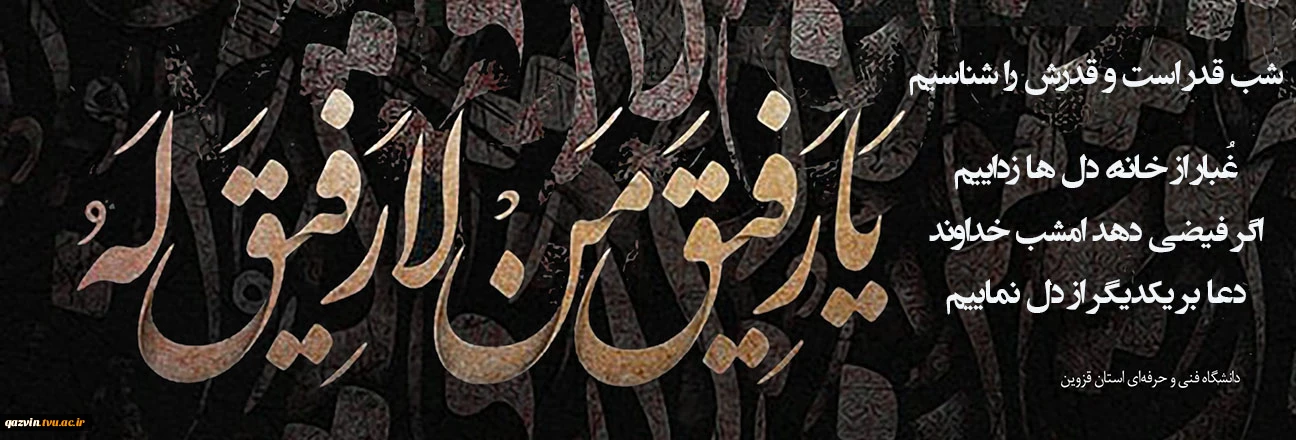 شب قدر است و قدرش را شناسیم
غُبار از خانه دل ها زداییم
اگر فیضی دهد امشب خداوند
دعا بر یکدیگر از دل نماییم
دانشگاه فنی و حرفه‌ای استان قزوین
یا رَفیقَ مَنْ لا رَفیقَ لَهُ
qazvin.tvu.ac.ir